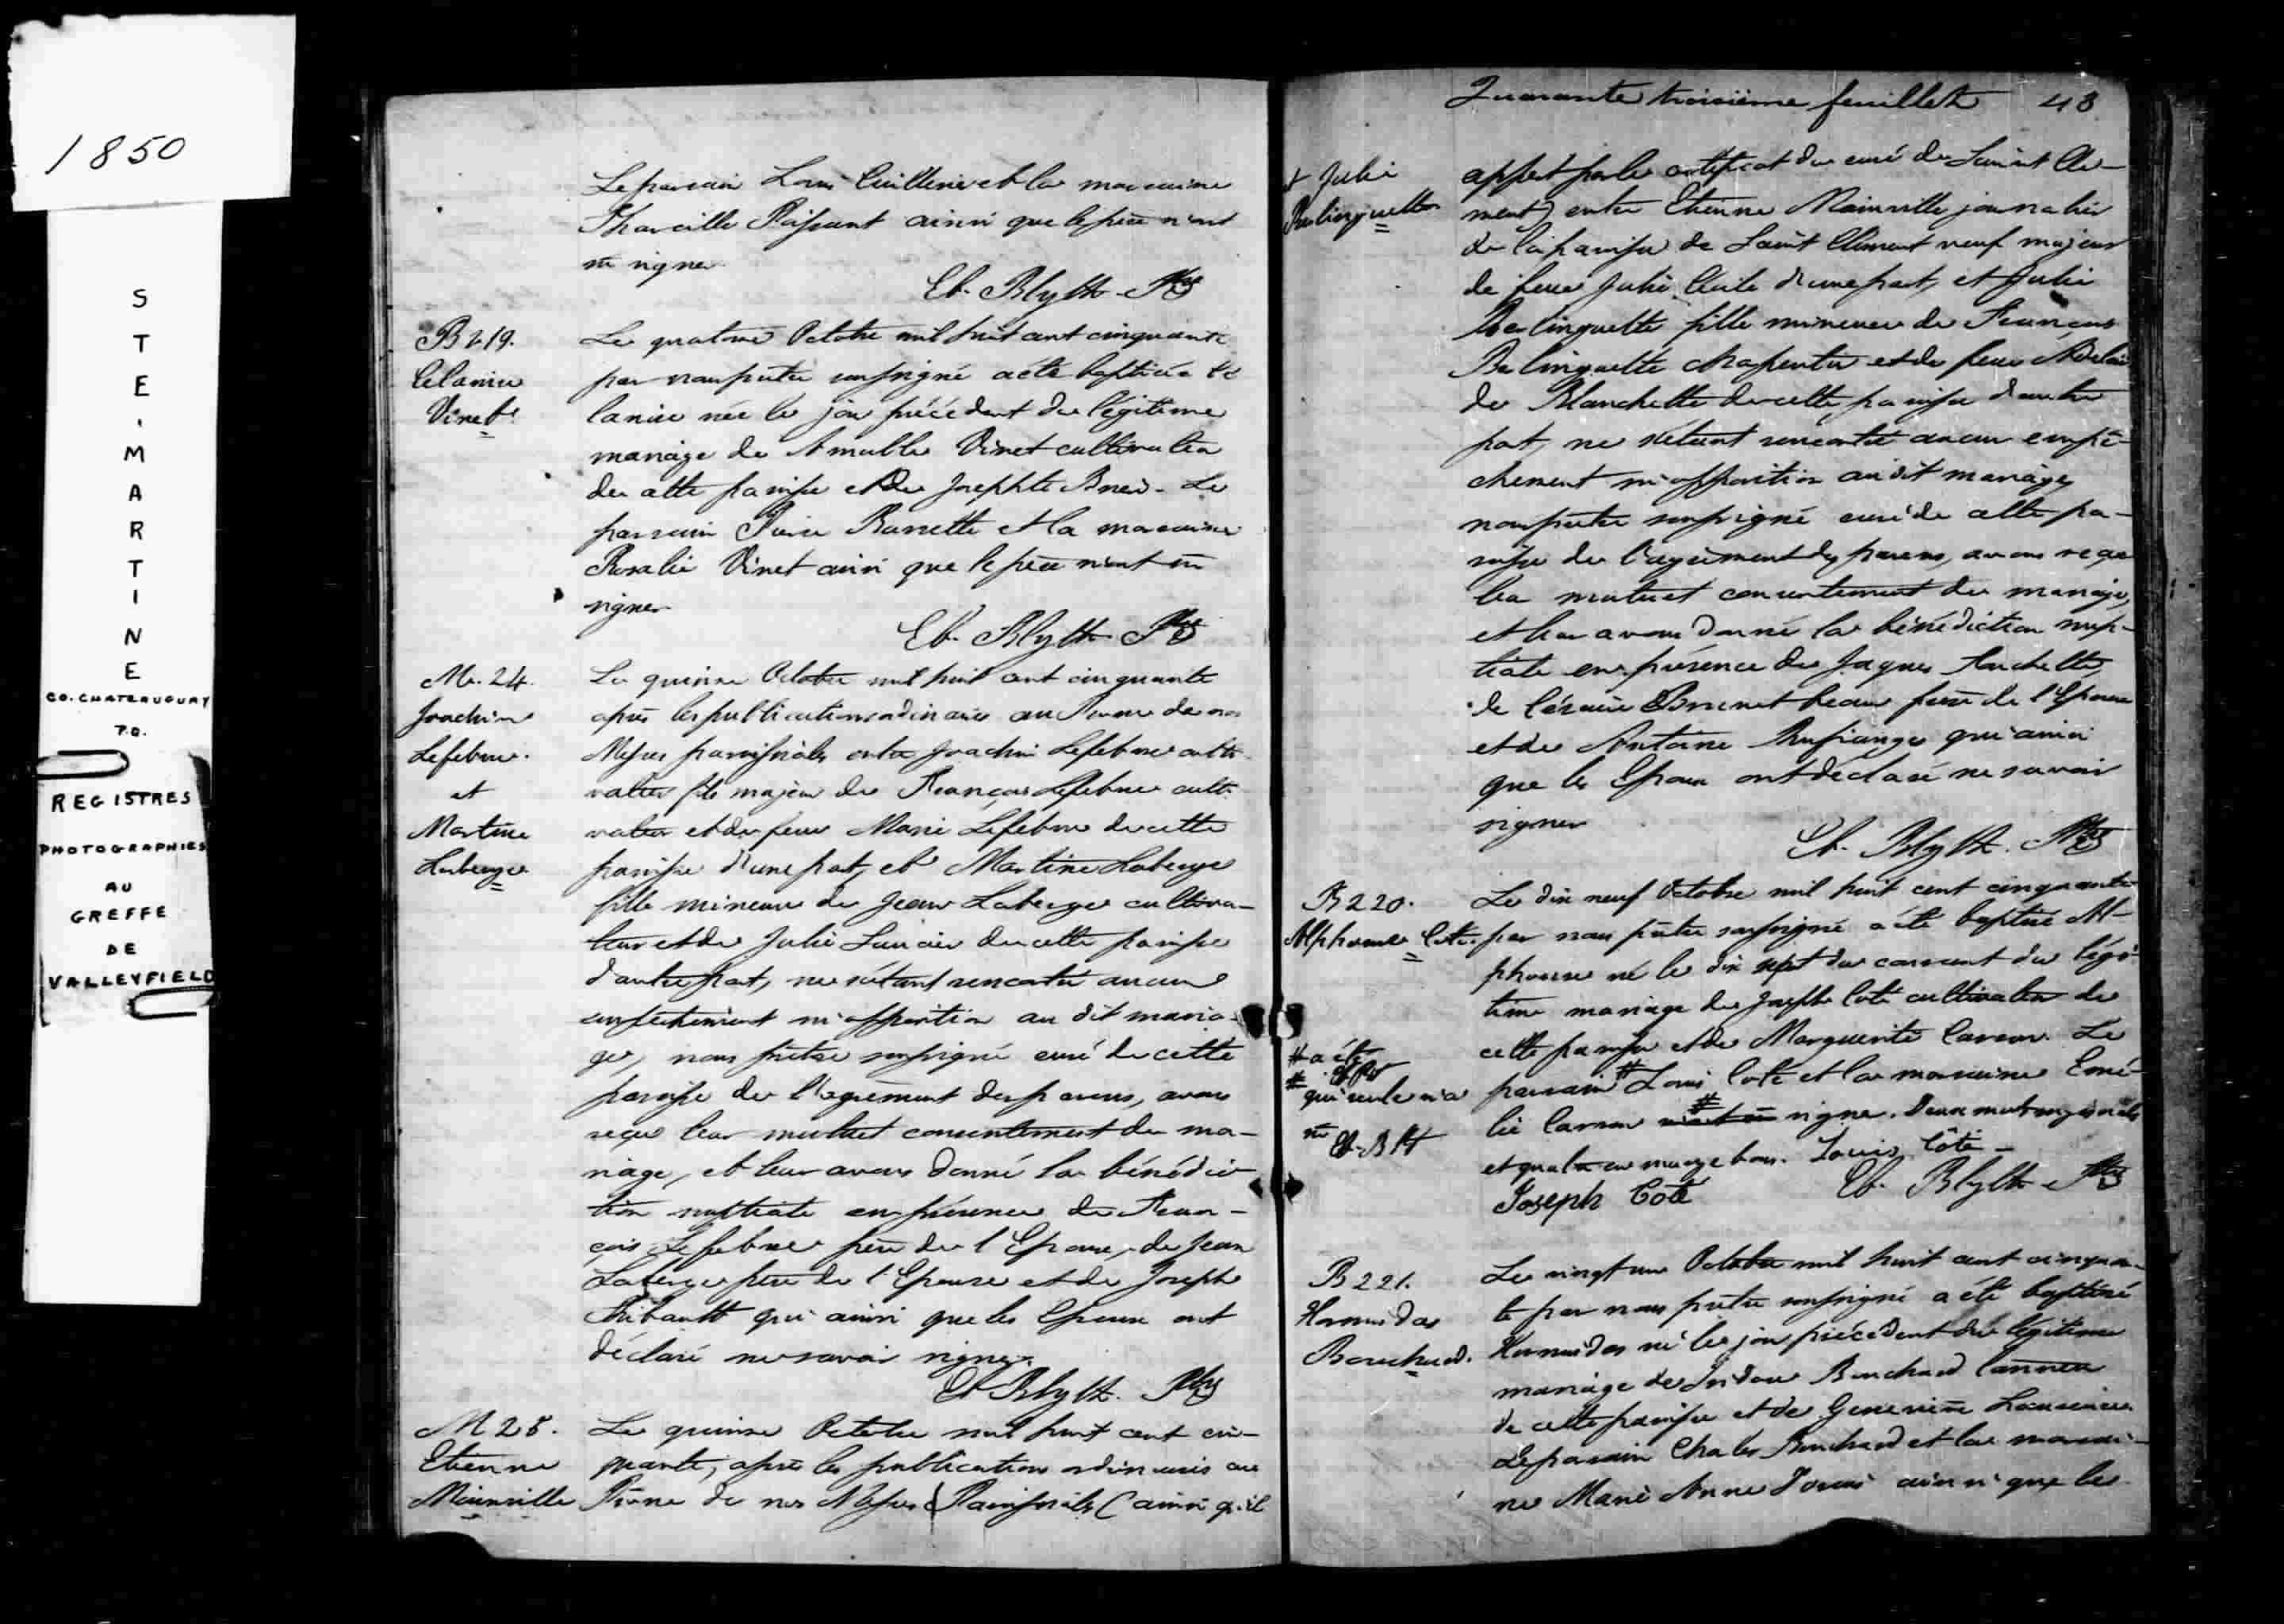 1850
STE. MARTINE
CO. CHATEAUGUAY
P.Q.
REGISTRES
PHOTOGRAPHIES
AU
GREFFE
DE
VALLEYFIELD
Le parrain Louis et la marraine
ainsi que le père n'ont
su signer
Eb. Blyth Ptre
B 219.
Célanire
Vinet
Le quatorze Octobre mil huit cent cinquante
par nous prêtre soussigné a été baptisée Cé
lanire née le jour précédent du légitime
mariage de Amable Vinet cultivateur
de cette paroisse et de Josephte Le
parrain Pierre et la marraine
Rosalie Vinet ainsi que le père n'ont su
signer
Eb. Blyth Ptre
M. 24.
Joachim
Lefebvre.
et
Martine
Laberge
Le quinze Octobre mil huit cent cinquante
après les publications ordinaires au Prone de nos
Messes paroissiales entre Joachim Lefebvre culti
vateur fils majeur de François Lefebvre culti
vateur et de feue Marie Lefebvre de cette
paroisse d'une part, et Martine Laberge
fille mineure de Jean Laberge cultiva-
teur et de Julie de cette paroisse
d'autre part, ne s'étant rencontré aucun
empechement ni opposition au dit maria-
ge, nous prêtre soussigné curé de cette
paroisse de l'agrément des parens, avons
reçu leur mutuel consentement de ma-
riage, et leur avons donné la bénédic
tion nuptiale en présence de Fran-
çois Lefebvre père de l'Epoux, de Jean
Laberge père de l'Epouse et de Joseph
Thibault qui ainsi que les Epoux ont
déclaré ne savoir signer.
Eb. Blyth. Ptre
M 25.
Etienne
Mainville
Le quinze Octobre mil huit cent cin-
quante, après les publications ordinaires au
Prône de nos Messes Paroissiales (ainsi qu'il
Quarante troisième feuillet 43
et Julie
Berlinguette
appert par le certificat du curé de Saint Clé-
ment) entre Etienne Mainville journalier
de la paroisse de Saint Clément veuf majeur
de feue Julie d'une part, et Julie
Berlinguette fille mineure de François
Berlinguette charpentier et de feue Adelaï
de Blanchette de cette paroisse d'autre
part, ne s'étant rencontré aucun empê-
chement ni opposition au dit mariage,
nous prêtre soussigné curé de cette pa-
roisse de l'agrément des parens, avons reçu
leur mutuel consentement de mariage,
et leur avons donné la bénédiction nup-
tiale en présence de Jaques
de beau frère de l'Epoux
et de Antoine qui ainsi
que les Epoux ont déclaré ne savoir
signer
Eb. Blyth. Ptre
B 220.
Alphonse Coté.
Le dix neuf Octobre mil huit cent cinquante
par nous prêtre soussigné a été baptisé Al-
phonse né le dix sept du courant du légi-
time mariage de Joseph Coté cultivateur de
cette paroisse et de Marguerite Le
parrain # Louis Coté et la marraine Emé-
lie # signer. Deux mots
et quatre en marge bons. Louis Côté
Joseph Coté
Eb. Blyth Ptre
# a été
#
qui seule n'a
su
Eb. B Pt
B 221.
Hormidas
Bouchard.
Le vingt un Octobre mil huit cent cinquan-
te par nous prêtre soussigné a été baptisé
Hormidas né le jour précédent du légitime
mariage de Bouchard
de cette paroisse et de Geneviève
Le parrain Charles Bouchard et la marrai-
ne Marie Anne ainsi que le